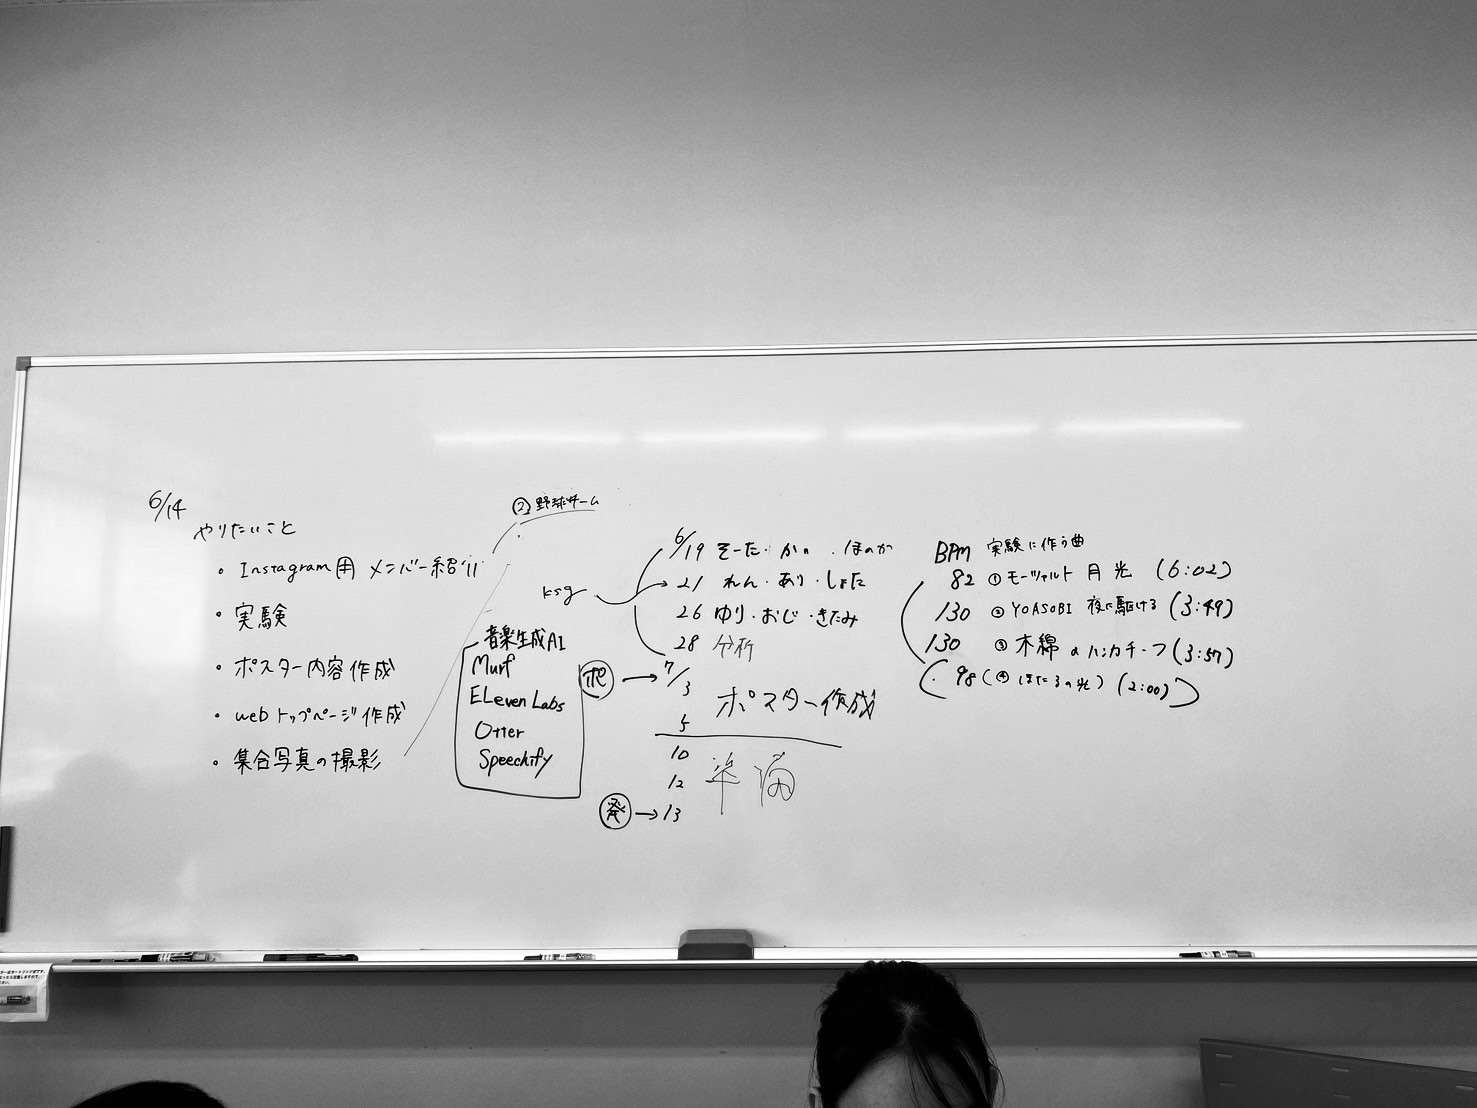 6/14
やりたいこと
・Instagram用 メンバー紹介
・実験
・ポスター内容作成
・webトップページ作成
・集合写真の撮影
② 野球チーム
ksg
音楽生成AI
Murf
ELevenLabs
Otter
Speechify
6/19 そーた・かの・ほのか
21 れん・あり・しょた
26 ゆり・おじ・きたみ
28 分析
ポ → 7/3
ポスター作成
5
10
12
準備
発 → 13
BPM 実験に作う曲
82 ① モーツァルト 月光 (6:02)
130 ② YOASOBI 夜に駆ける (3:49)
130 ③ 木綿のハンカチーフ (3:57)
98 (④ ほたるの光) (2:00)